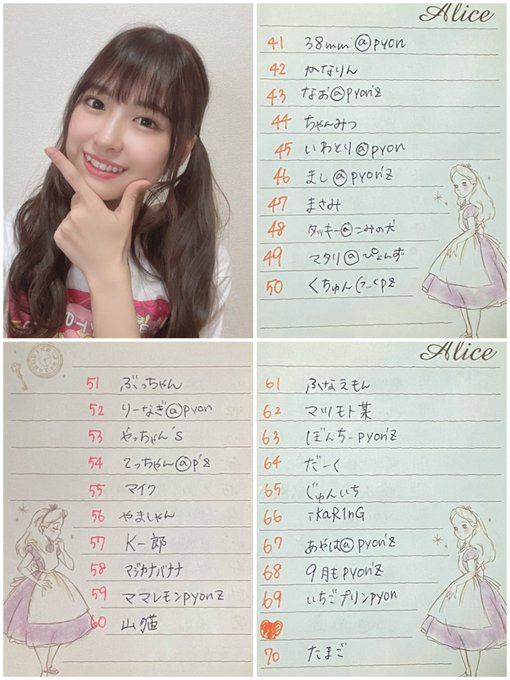 Alice
41 38mm@pyon
42 かなりん
43 なお@pyon'z
44 ちゃんみつ
45 いわとり@pyon
46 まし@pyon'z
47 まさみ
48 タッキー@こみの犬
49 マタリ@ぴょんず
50 くちゅん
51 ぶっちゃん
52 りーなぎ@pyon
53 やっちゃん's
54 てっちゃん@p'z
55 マイク
56 やましゃん
57 K一郎
58 マジカナバナナ
59 ママレモンpyonz
60 山猫
Alice
61 ふなえもん
62 マツモト某
63 ぼんちーpyon'z
64 だーく
65 じゅんいち
66 ikaR1nG
67 あやは@pyon'z
68 9月もpyon'z
69 いちごプリンpyon
70 たまご